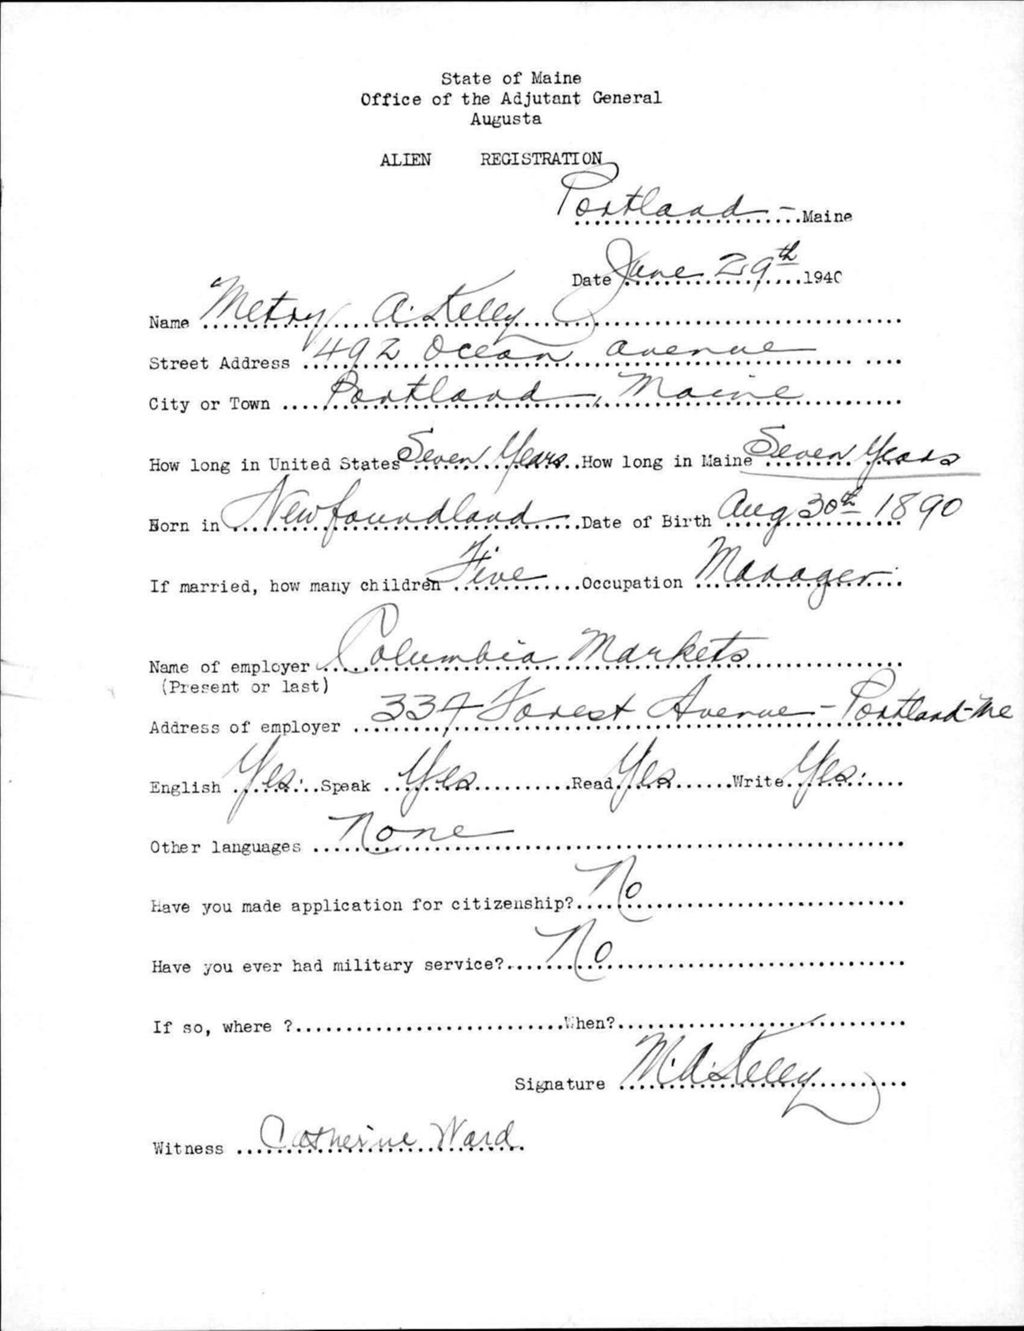 State of Maine
Office of the Adjutant General
Augusta
ALIEN REGISTRATION
Portland - Maine
Date June 29th 1940
Name A. Kelley
Street Address 492 Ocean Avenue
City or Town Portland, Maine
How long in United States Seven Years How long in Maine Seven Years
Born in Newfoundland Date of Birth Aug 30th 1890
If married, how many children Five Occupation Manager
Name of employer Columbia Markets
(Present or last)
Address of employer 334 Forest Avenue - Portland - Me
English Yes. Speak Yes Read Yes Write Yes.
Other languages None
Have you made application for citizenship? No
Have you ever had military service? No
If so, where ? When?
Signature M. A. Kelley
Witness Catherine Ward